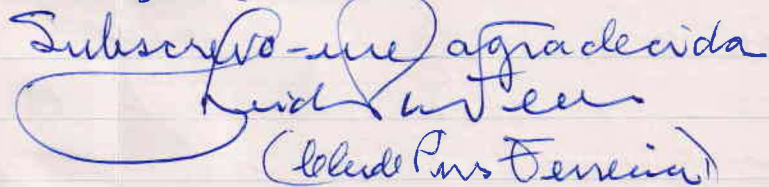 Subscrevo-me agradecida
(Cleide Pires Ferreira)